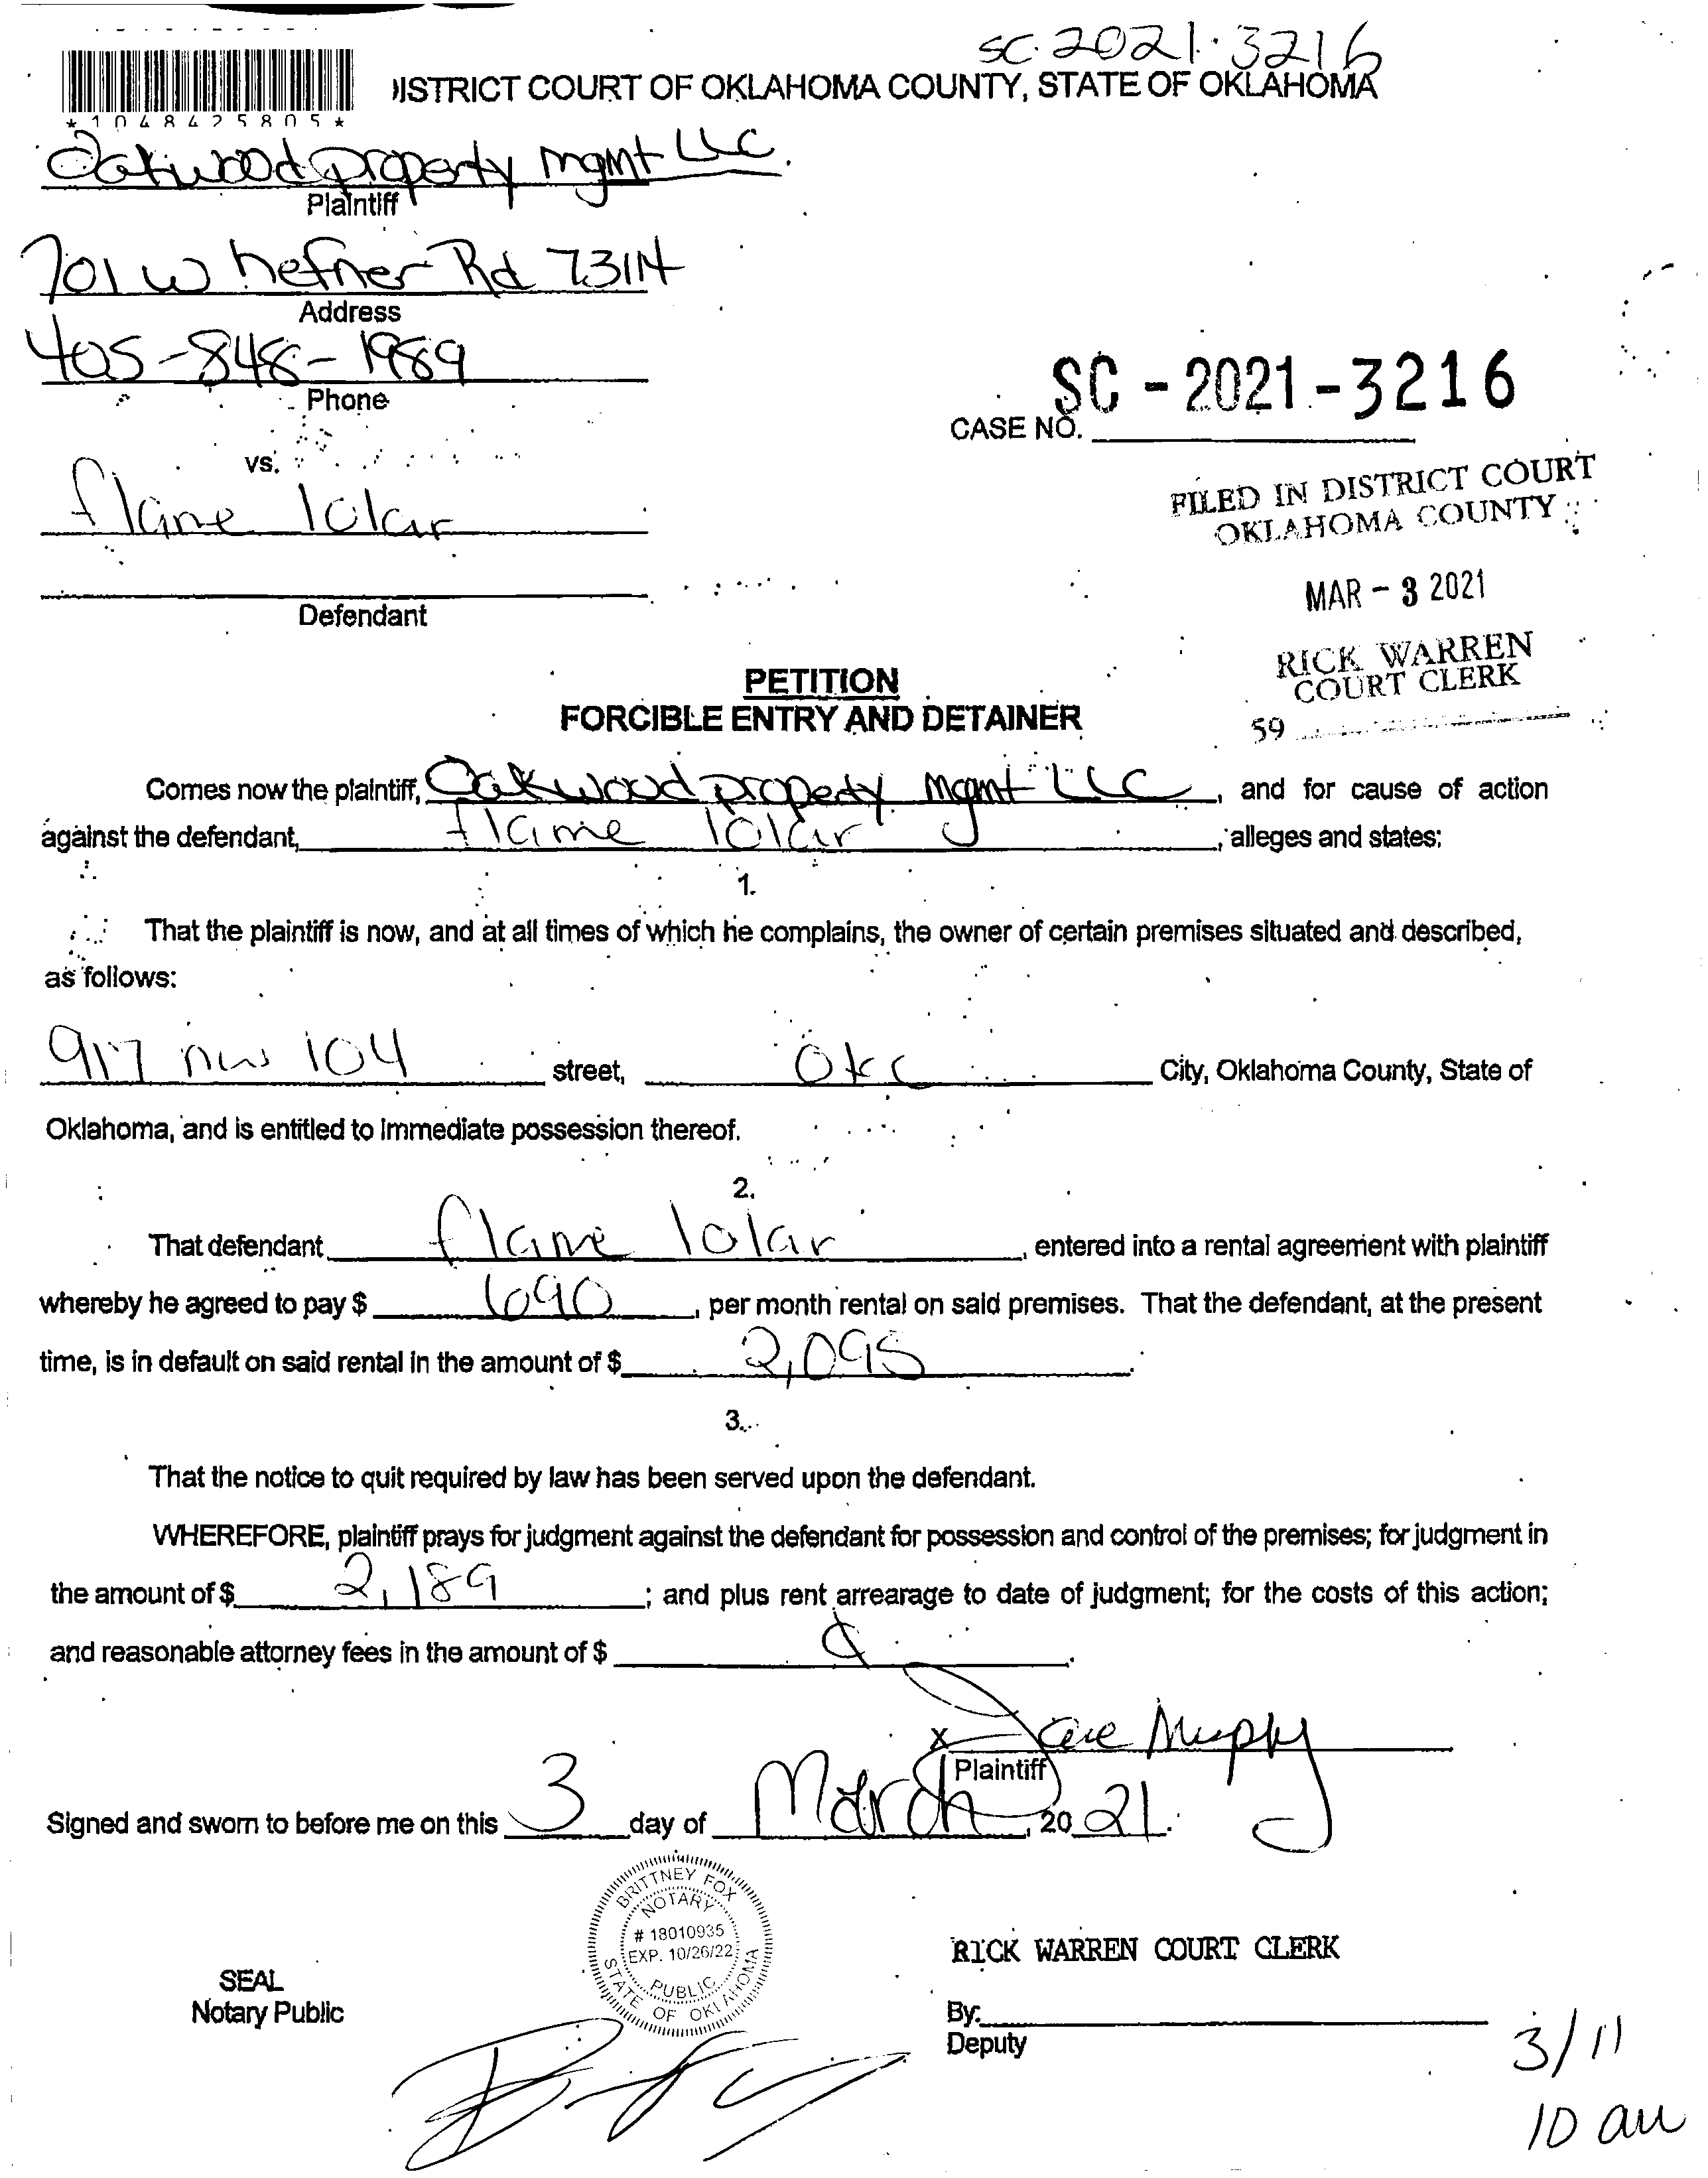 SC-2021-3216
ISTRICT COURT OF OKLAHOMA COUNTY, STATE OF OKLAHOMA
*1048425805*
Oakwood property mgmt LLC.
Plaintiff
701 W hefner Rd 73114
Address
405-848-1989
Phone
SC-2021-3216
CASE NO.
vs.
flame lolar
FILED IN DISTRICT COURT
OKLAHOMA COUNTY
MAR - 3 2021
Defendant
RICK WARREN
COURT CLERK
59
PETITION
FORCIBLE ENTRY AND DETAINER
Comes now the plaintiff, Oakwood property mgmt LLC, and for cause of action
against the defendant, flame lolar, alleges and states:
1.
That the plaintiff is now, and at all times of which he complains, the owner of certain premises situated and described,
as follows:
917 nw 104 street, OKC City, Oklahoma County, State of
Oklahoma, and is entitled to immediate possession thereof.
2.
That defendant flame lolar, entered into a rental agreement with plaintiff
whereby he agreed to pay $ 690, per month rental on said premises. That the defendant, at the present
time, is in default on said rental in the amount of $ 2,095.
3.
That the notice to quit required by law has been served upon the defendant.
WHEREFORE, plaintiff prays for judgment against the defendant for possession and control of the premises; for judgment in
the amount of $ 2,189; and plus rent arrearage to date of judgment; for the costs of this action;
and reasonable attorney fees in the amount of $
X Murphy
Plaintiff
Signed and sworn to before me on this 3 day of March, 2021.
BRITTNEY FOX
NOTARY
# 18010935
EXP. 10/26/22
PUBLIC
STATE OF OKLAHOMA
RICK WARREN COURT CLERK
SEAL
Notary Public
By:
Deputy
3/11
10 am